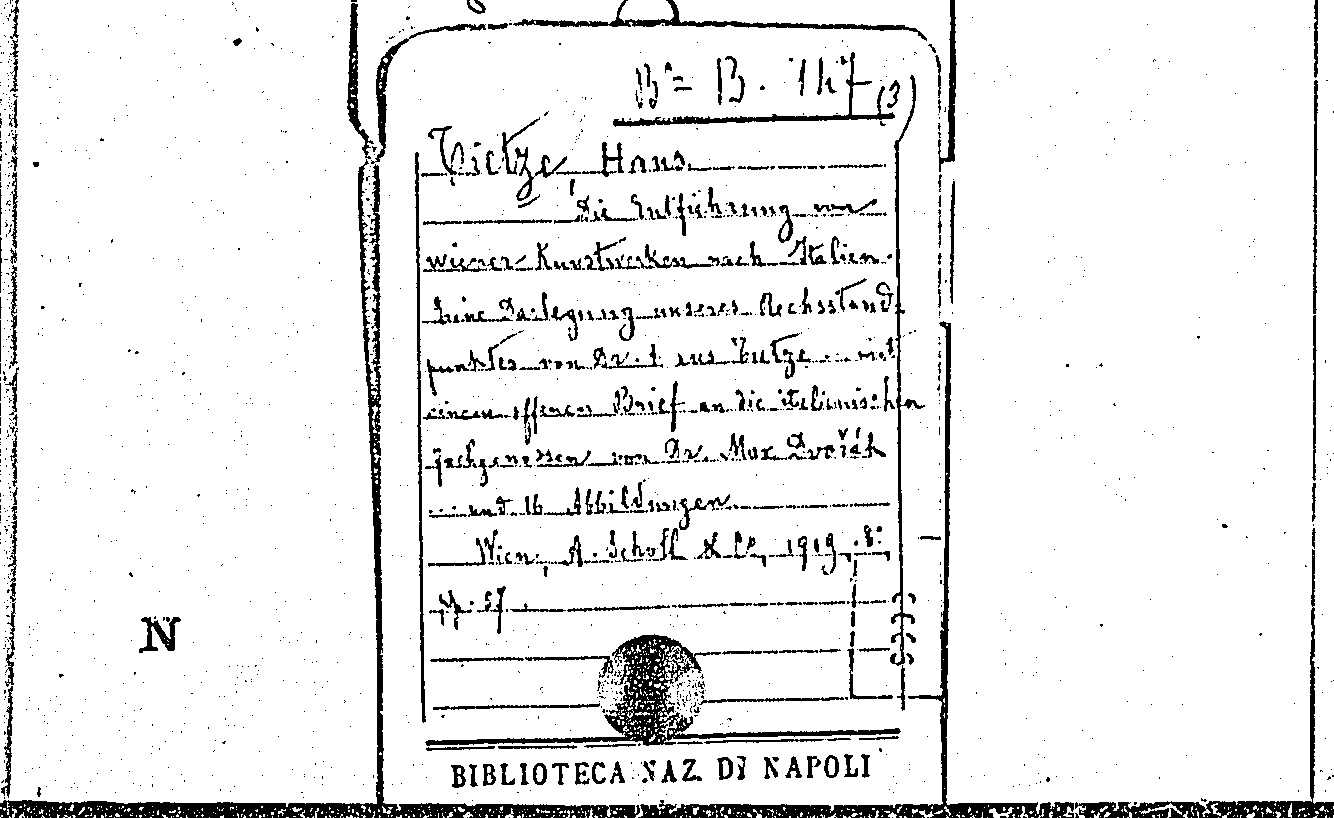 B^a = B. 147 (3)
Tietze, Hans.
Die Entführung von
wiener Kunstwerken nach Italien.
Eine Darlegung unseres Rechsstand-
punktes von Dr. Hans Tietze ... mit
einem offenen Brief an die italienischen
Fachgenossen von Dr. Max Dvořák
... und 16 Abbildungen.
Wien, A. Scholl & Co, 1919, 8°
pp. 57.
N
BIBLIOTECA NAZ. DI NAPOLI